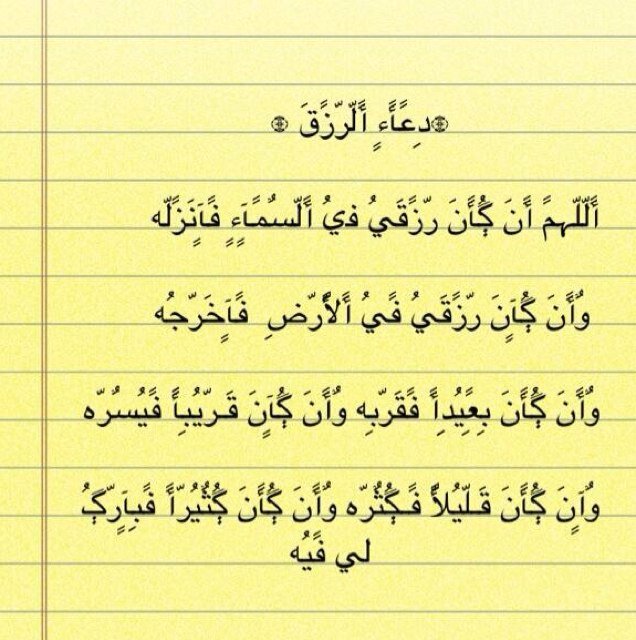 ۞دِعًأَءٍ أَلّرّزًقَ ۞
أَلّلّہمً أَنَ كُأَنَ رّزًقَيُ فيُ أَلّسمًأَءٍ فًأَنَزًلّه
وٌأَنَ كُأَنَ رّزًقَيُ فًيُ أَلأَرّضِ فًأَخَرّجُه
وٌأَنَ كُأَنَ بِعًيُدِأَ فًقَرّبِه وٌأَنَ كُأَنَ قَرّيُبِأَ فًيُسرّه
وٌأَنَ كُأَنَ قَلّيُلأَ فًكُثُرّه وٌأَنَ كُأَنَ كُثُيُرّأَ فًبِأَرّكُ
لي فًيُه